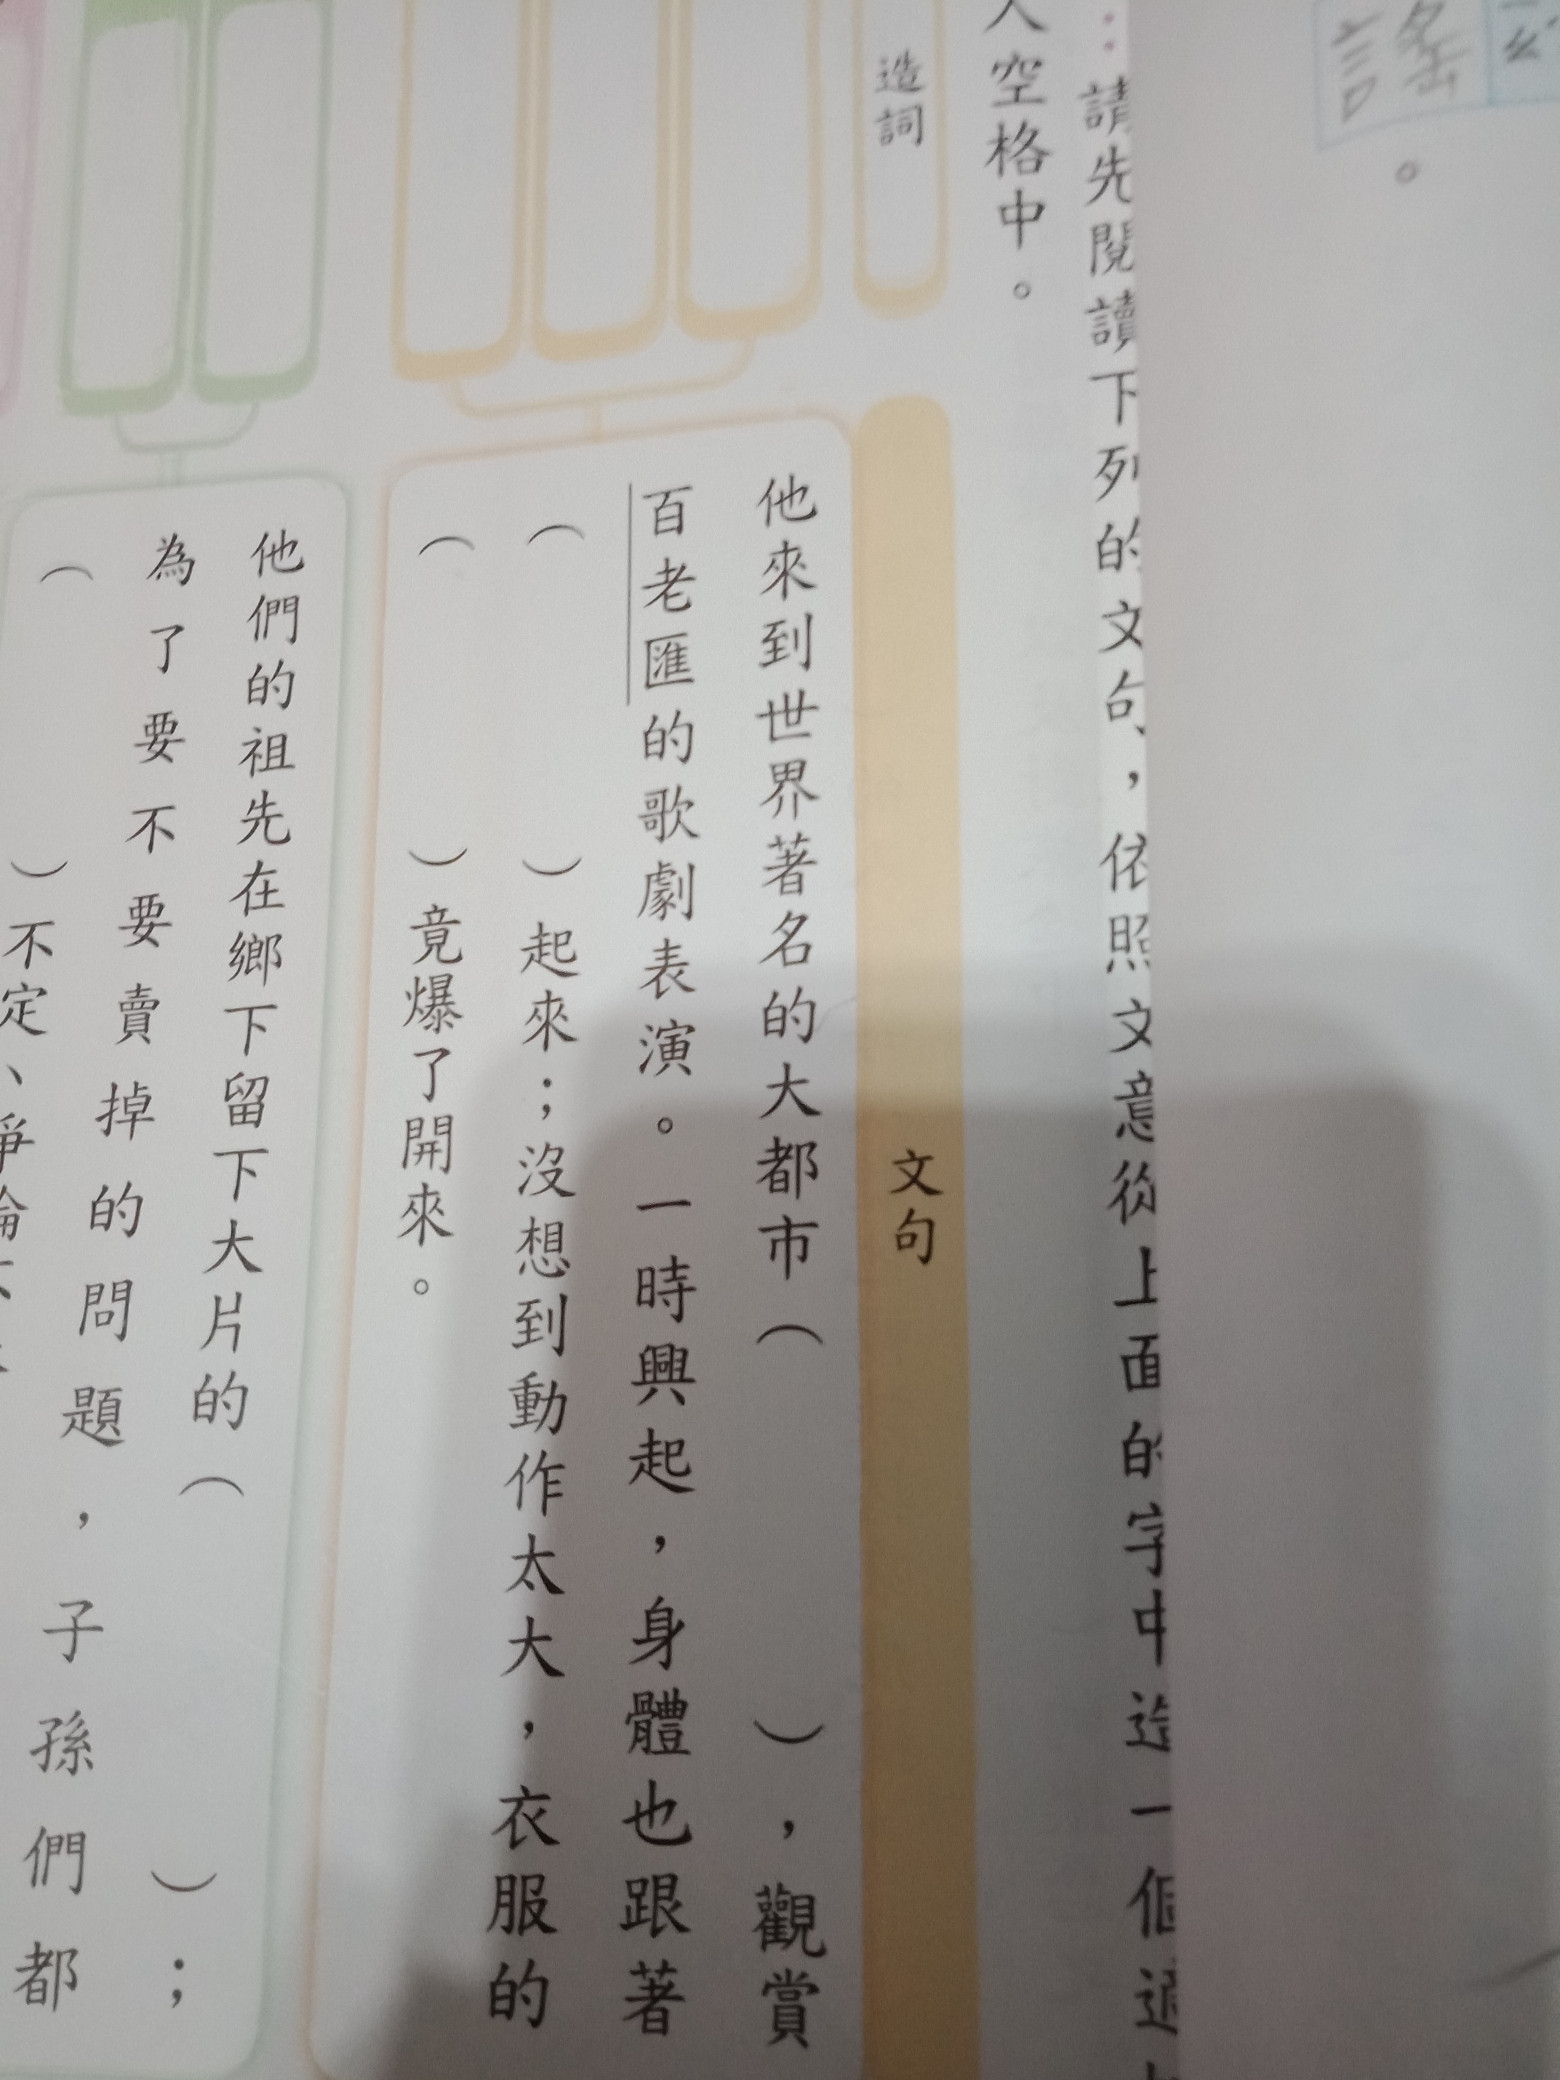 謠
。
：請先閱讀下列的文句，依照文意從上面的字中造一個適
入空格中。
造詞
文句
他來到世界著名的大都市（　　），觀賞
百老匯的歌劇表演。一時興起，身體也跟著
（　　）起來；沒想到動作太大，衣服的
（　　）竟爆了開來。
他們的祖先在鄉下留下大片的（　　）；
為了要不要賣掉的問題，子孫們都
（　　）不定、爭論不